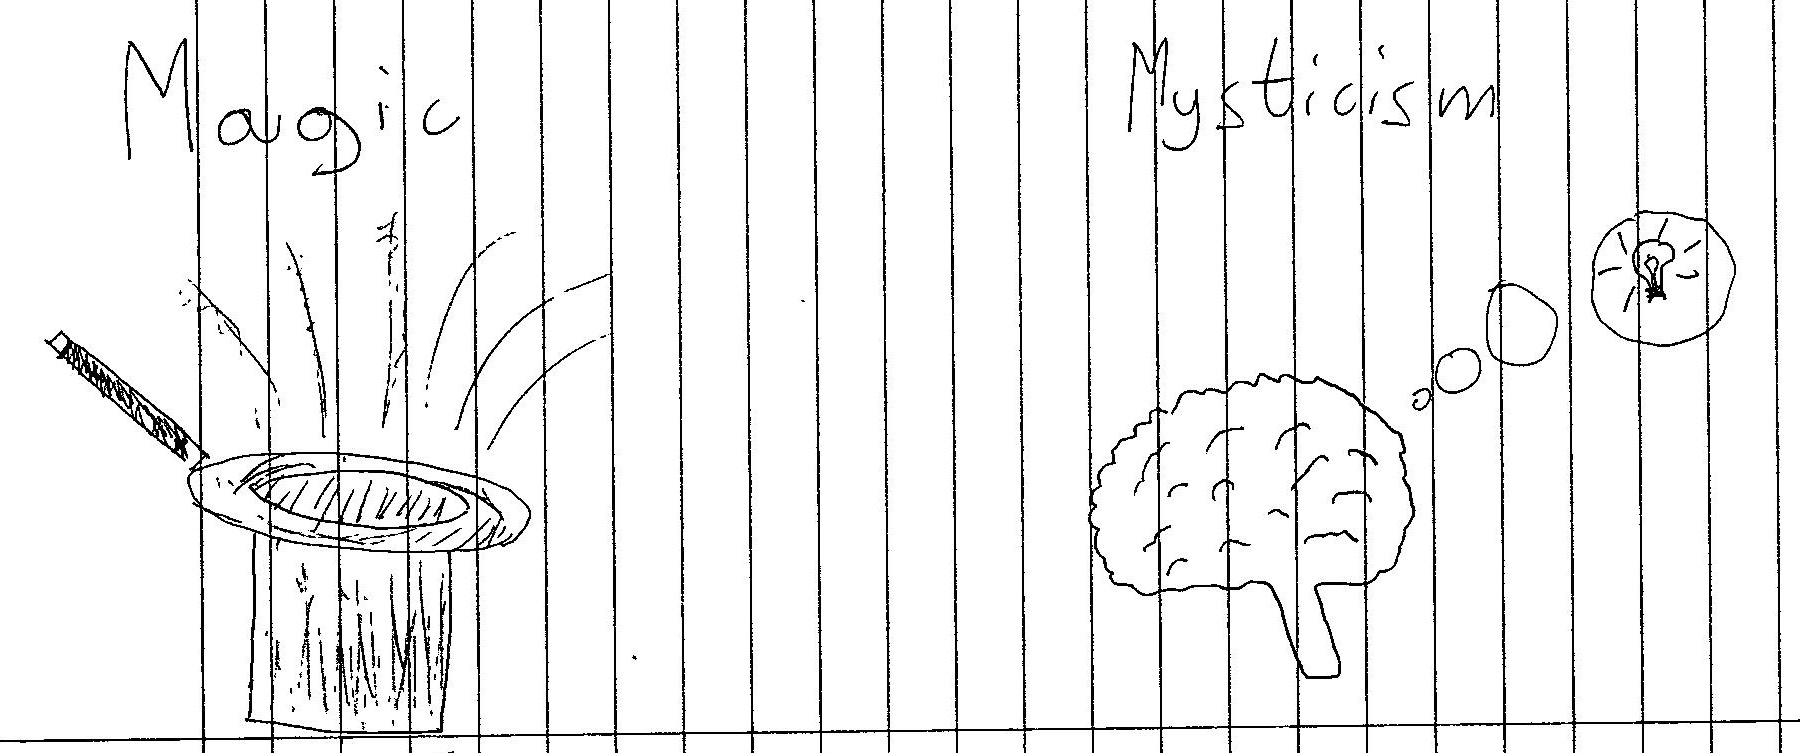 Magic
Mysticism